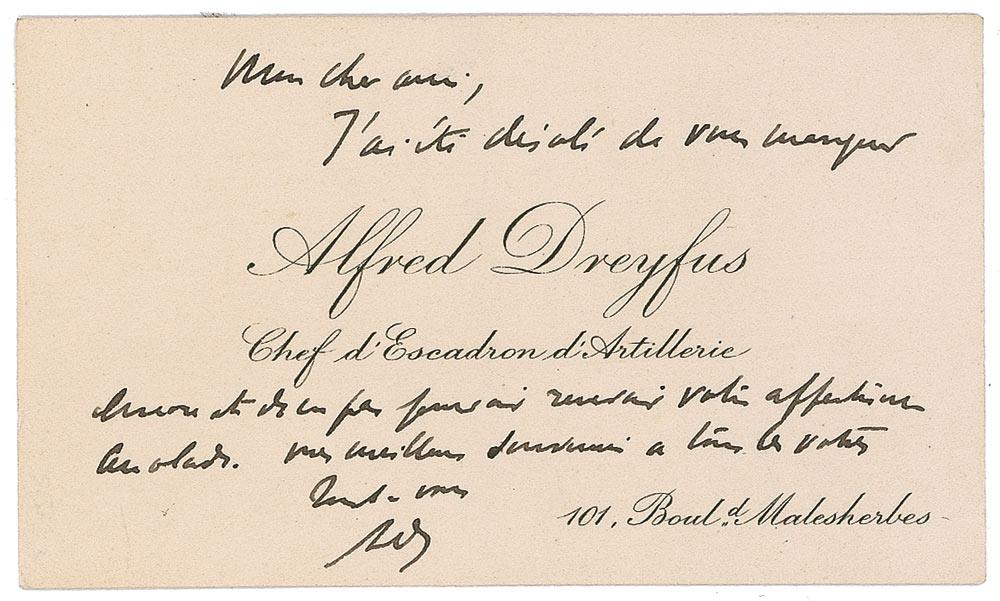 Mon cher ami,
J'ai été désolé de vous manquer
Alfred Dreyfus
Chef d'Escadron d'Artillerie
et de ne pas pouvoir recevoir votre affectueuse
accolade. mes meilleurs souvenirs à tous les vôtres
Tout à vous
101, Boul.d Malesherbes